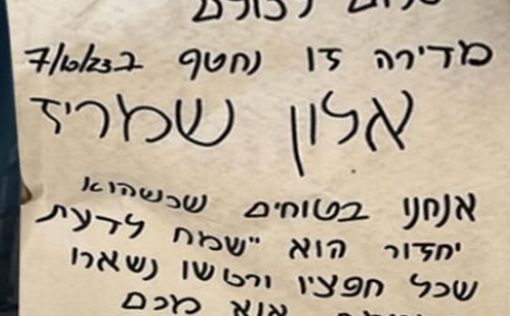 שלום לכולם
מדירה זו נחטף ב7/10/23
אלון שמריז
אנחנו בטוחים שכשהוא
יחזור הוא "שמח לדעת
שכל חפציו ורכושו נשארו
אנא מכם